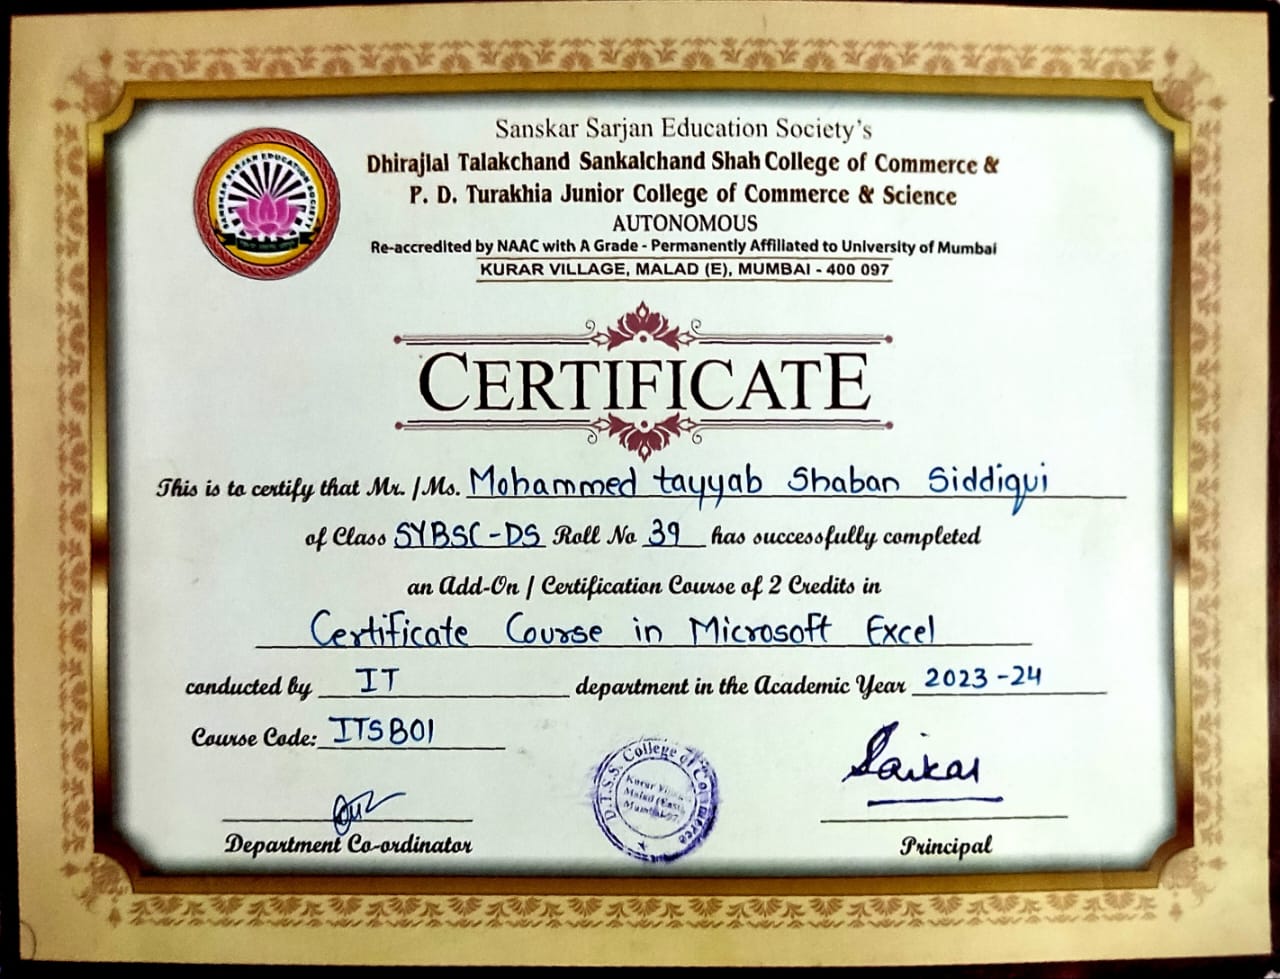 Sanskar Sarjan Education Society's
Dhirajlal Talakchand Sankalchand Shah College of Commerce &
P. D. Turakhia Junior College of Commerce & Science
AUTONOMOUS
Re-accredited by NAAC with A Grade - Permanently Affiliated to University of Mumbai
KURAR VILLAGE, MALAD (E), MUMBAI - 400 097
SANSKAR SARJAN EDUCATION SOCIETY
CERTIFICATE
This is to certify that Mr. /Ms. Mohammed tayyab Shaban Siddiqui
of Class SYBSC-DS Roll No 39 has successfully completed
an Add-On / Certification Course of 2 Credits in
Certificate Course in Microsoft Excel
conducted by IT department in the Academic Year 2023-24
Course Code: ITSB01
D.T.S.S. College of Commerce
Kurar
Malad (East)
Mumbai-97
Department Co-ordinator
Principal